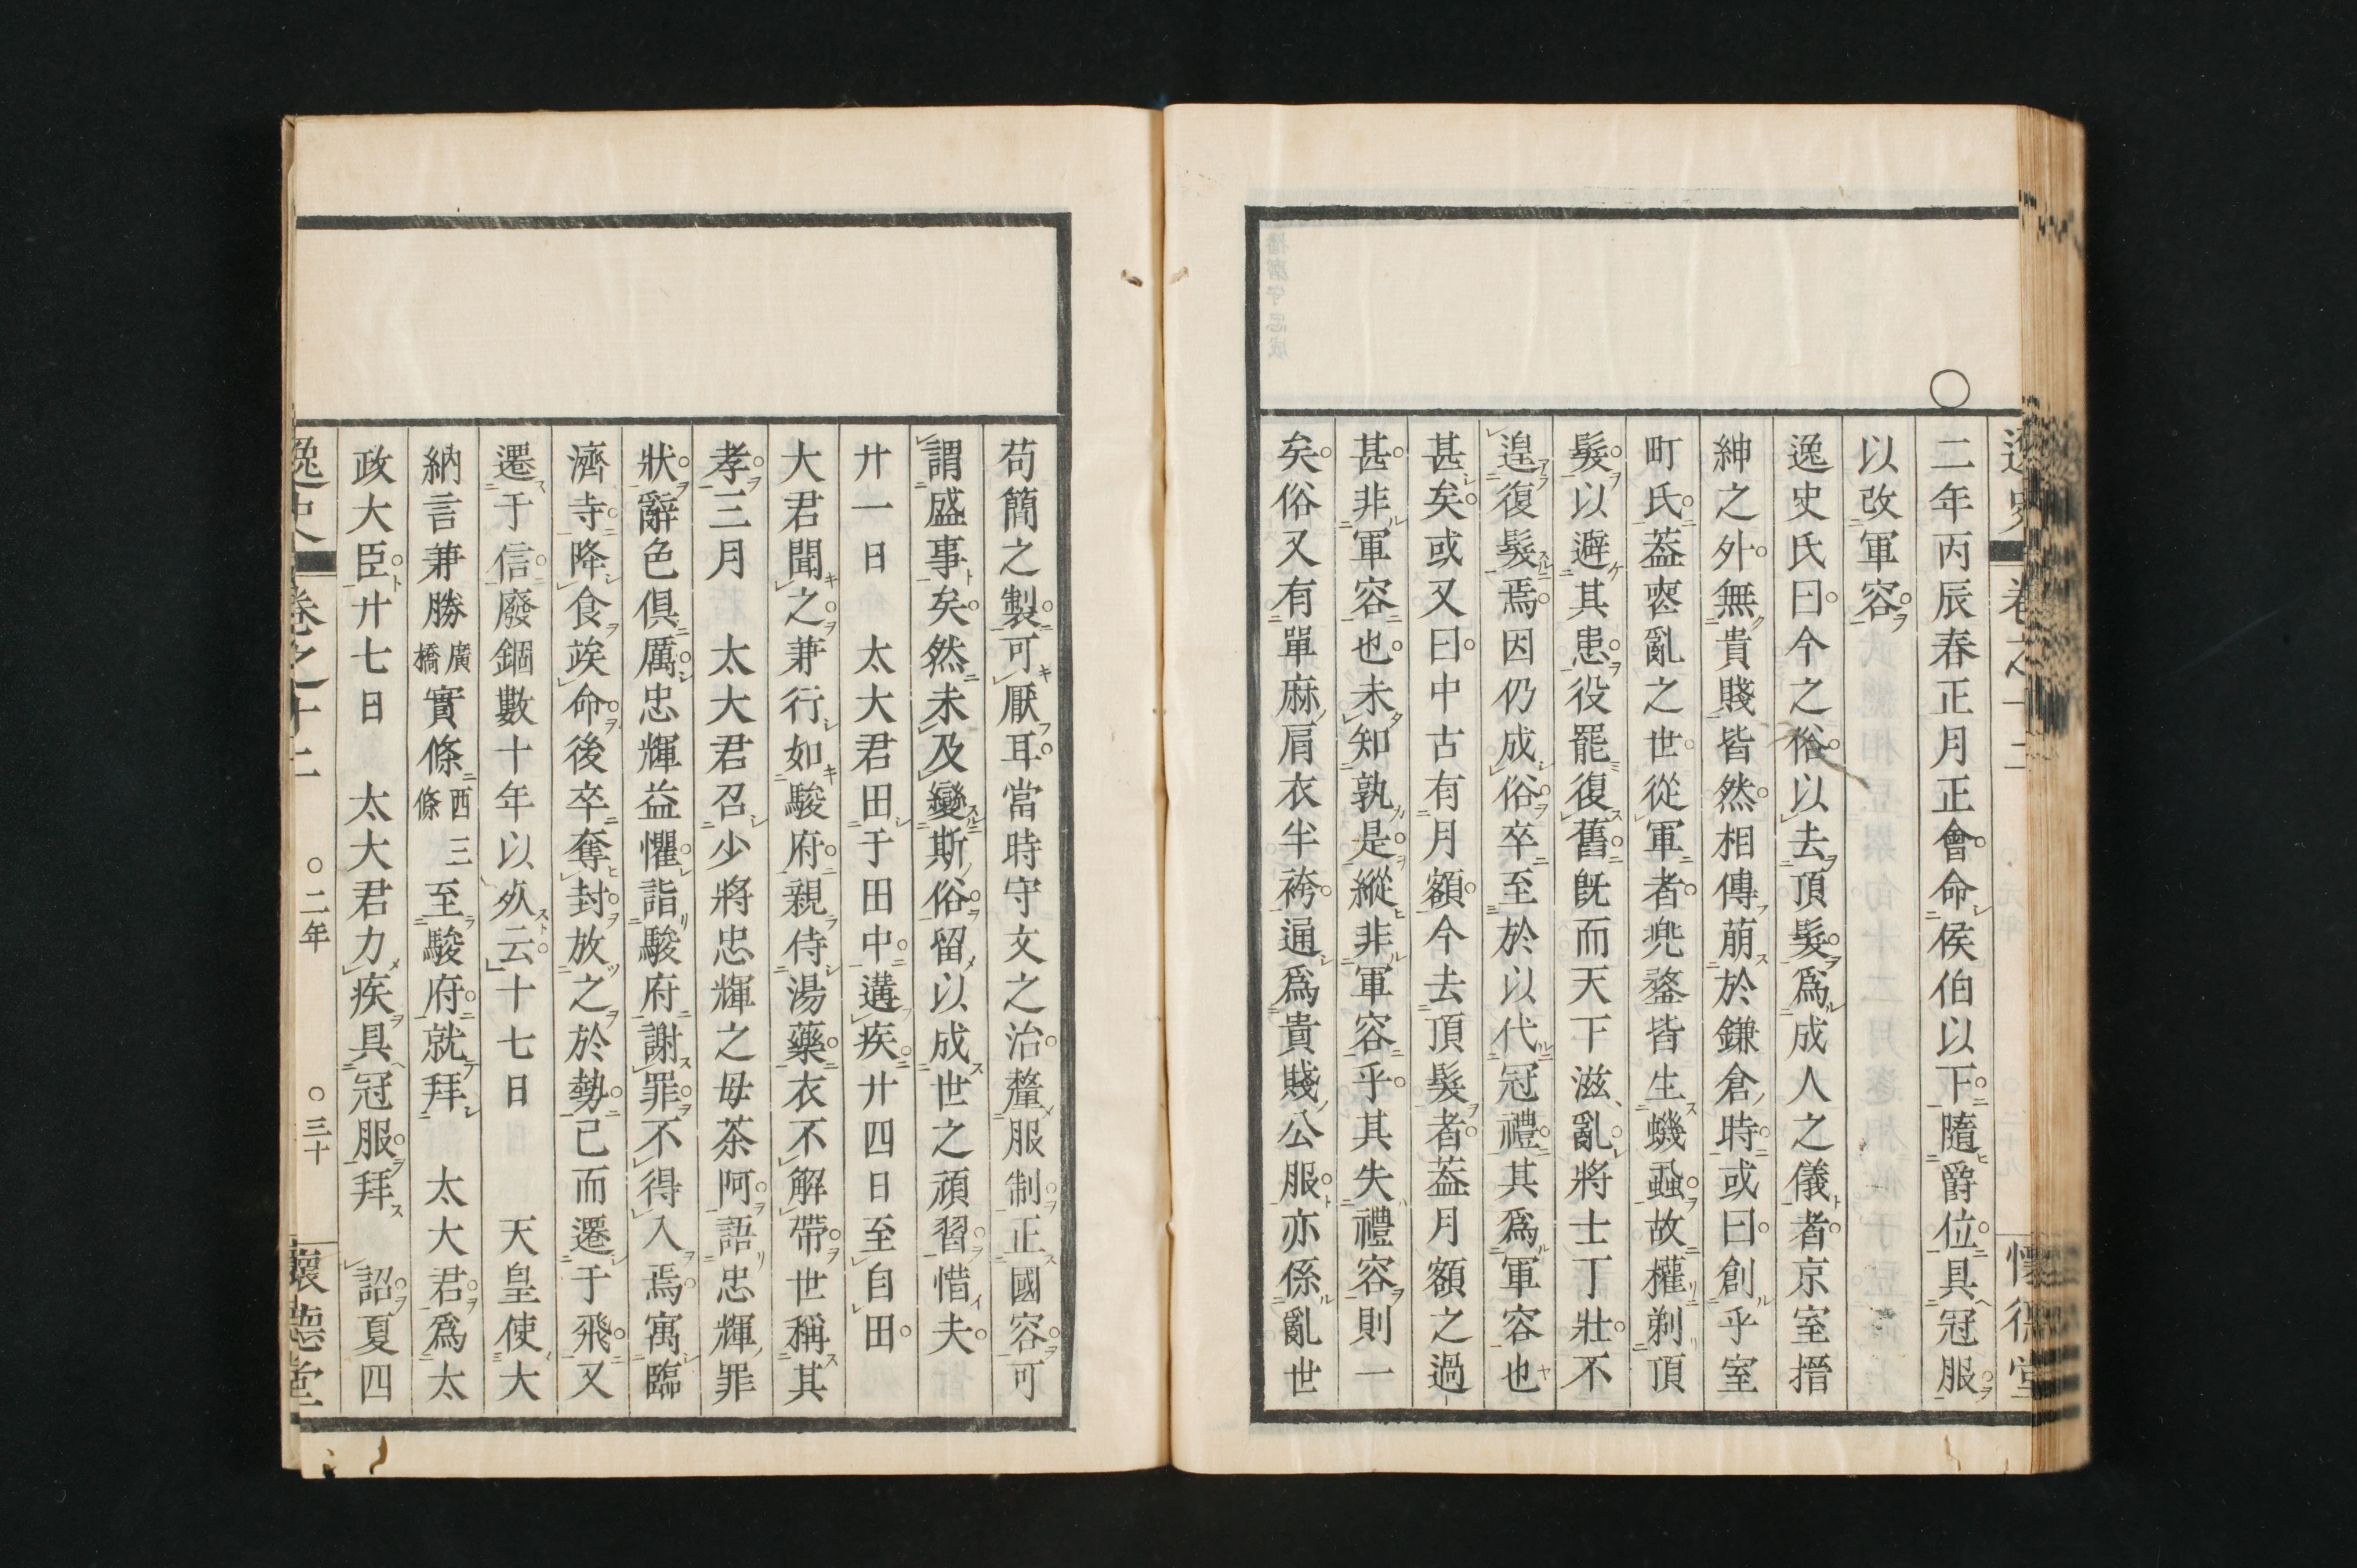 二年丙辰春正月正會命侯伯以下隨爵位具冠服
以改軍容
逸史氏曰今之俗以去頂髮爲成人之儀者京室搢
紳之外無貴賤皆然相傳萠於鎌倉時或曰創乎室
町氏葢喪亂之世從軍者兜鍪皆生蟣蝨故權剃頂
髮以避其患役罷復舊旣而天下滋亂將士丁壯不
遑復髮焉因仍成俗卒至於以代冠禮其爲軍容也
甚矣或又曰中古有月額今去頂髮者葢月額之過
甚非軍容也未知孰是縱非軍容乎其失禮容則一
矣俗又有單麻肩衣半袴通爲貴賤公服亦係亂世
苟簡之製可厭耳當時守文之治釐服制正國容可
謂盛事矣然未及變斯俗留以成世之頑習惜夫
廾一日　太大君田于田中遘疾廾四日至自田
大君聞之兼行如駿府親侍湯藥衣不解帶世稱其
孝三月　太大君召少將忠輝之母茶阿語忠輝罪
狀辭色俱厲忠輝益懼詣駿府謝罪不得入焉寓臨
濟寺降食竢命後卒奪封放之於勢已而遷于飛又
遷于信廢錮數十年以歿云十七日　天皇使大
納言兼勝廣橋實條西三條至駿府就拜　太大君爲太
政大臣廾七日　太大君力疾具冠服拜　詔夏四
逸史　卷之十二　○二年　○三十　懷德堂